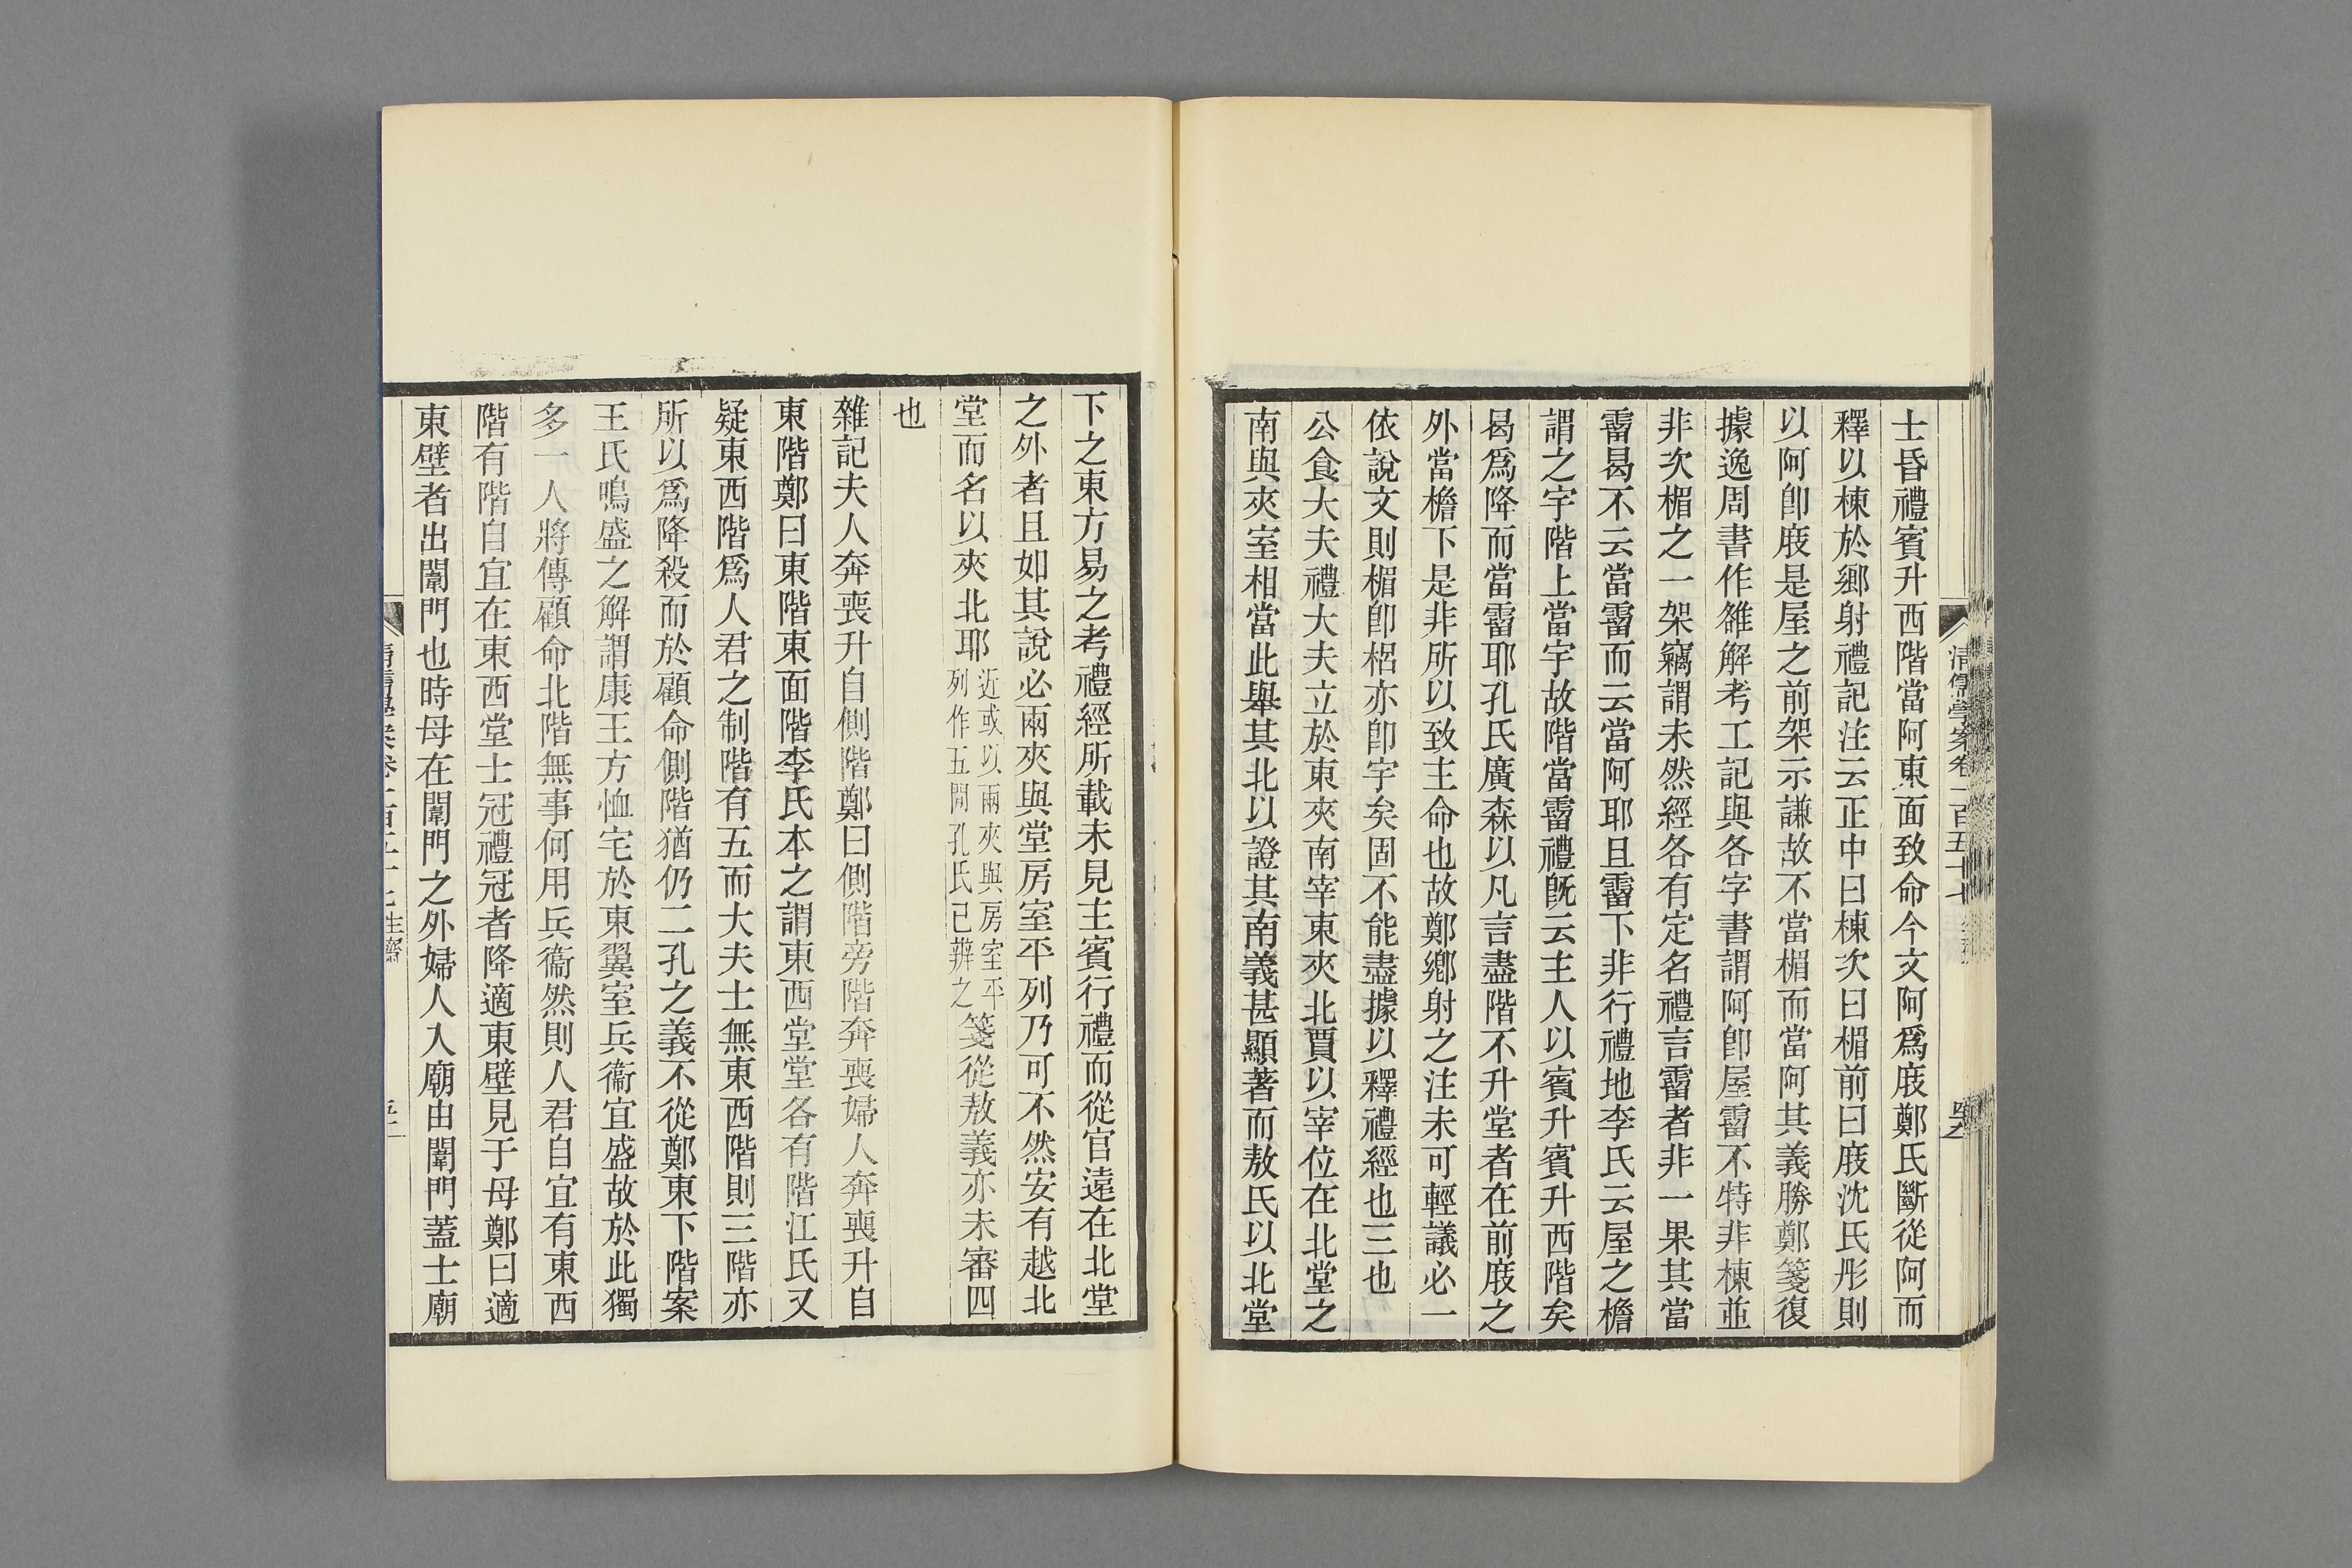 士昏禮賓升西階當阿東面致命今文阿爲庪鄭氏斷從阿而
釋以棟於鄉射禮記注云正中曰棟次曰楣前曰庪沈氏彤則
以阿卽庪是屋之前架示謙故不當楣而當阿其義勝鄭箋復
據逸周書作雒解考工記與各字書謂阿卽屋霤不特非棟並
非次楣之一架竊謂未然經各有定名禮言霤者非一果其當
霤曷不云當霤而云當阿耶且霤下非行禮地李氏云屋之檐
謂之宇階上當宇故階當霤禮旣云主人以賓升賓升西階矣
曷爲降而當霤耶孔氏廣森以凡言盡階不升堂者在前庪之
外當檐下是非所以致主命也故鄭鄉射之注未可輕議必一
依說文則楣卽梠亦卽宇矣固不能盡據以釋禮經也三也
公食大夫禮大夫立於東夾南宰東夾北賈以宰位在北堂之
南與夾室相當此舉其北以證其南義甚顯著而敖氏以北堂
下之東方易之考禮經所載未見主賓行禮而從官遠在北堂
之外者且如其說必兩夾與堂房室平列乃可不然安有越北
堂而名以夾北耶近或以兩夾與房室平列作五閒孔氏已辨之箋從敖義亦未審四
也
雜記夫人奔喪升自側階鄭曰側階旁階奔喪婦人奔喪升自
東階鄭曰東階東面階李氏本之謂東西堂堂各有階江氏又
疑東西階爲人君之制階有五而大夫士無東西階則三階亦
所以爲降殺而於顧命側階猶仍二孔之義不從鄭東下階案
王氏鳴盛之解謂康王方恤宅於東翼室兵衞宜盛故於此獨
多一人將傳顧命北階無事何用兵衞然則人君自宜有東西
階有階自宜在東西堂士冠禮冠者降適東壁見于母鄭曰適
東壁者出闈門也時母在闈門之外婦人入廟由闈門蓋士廟
清儒學案卷一百五十七